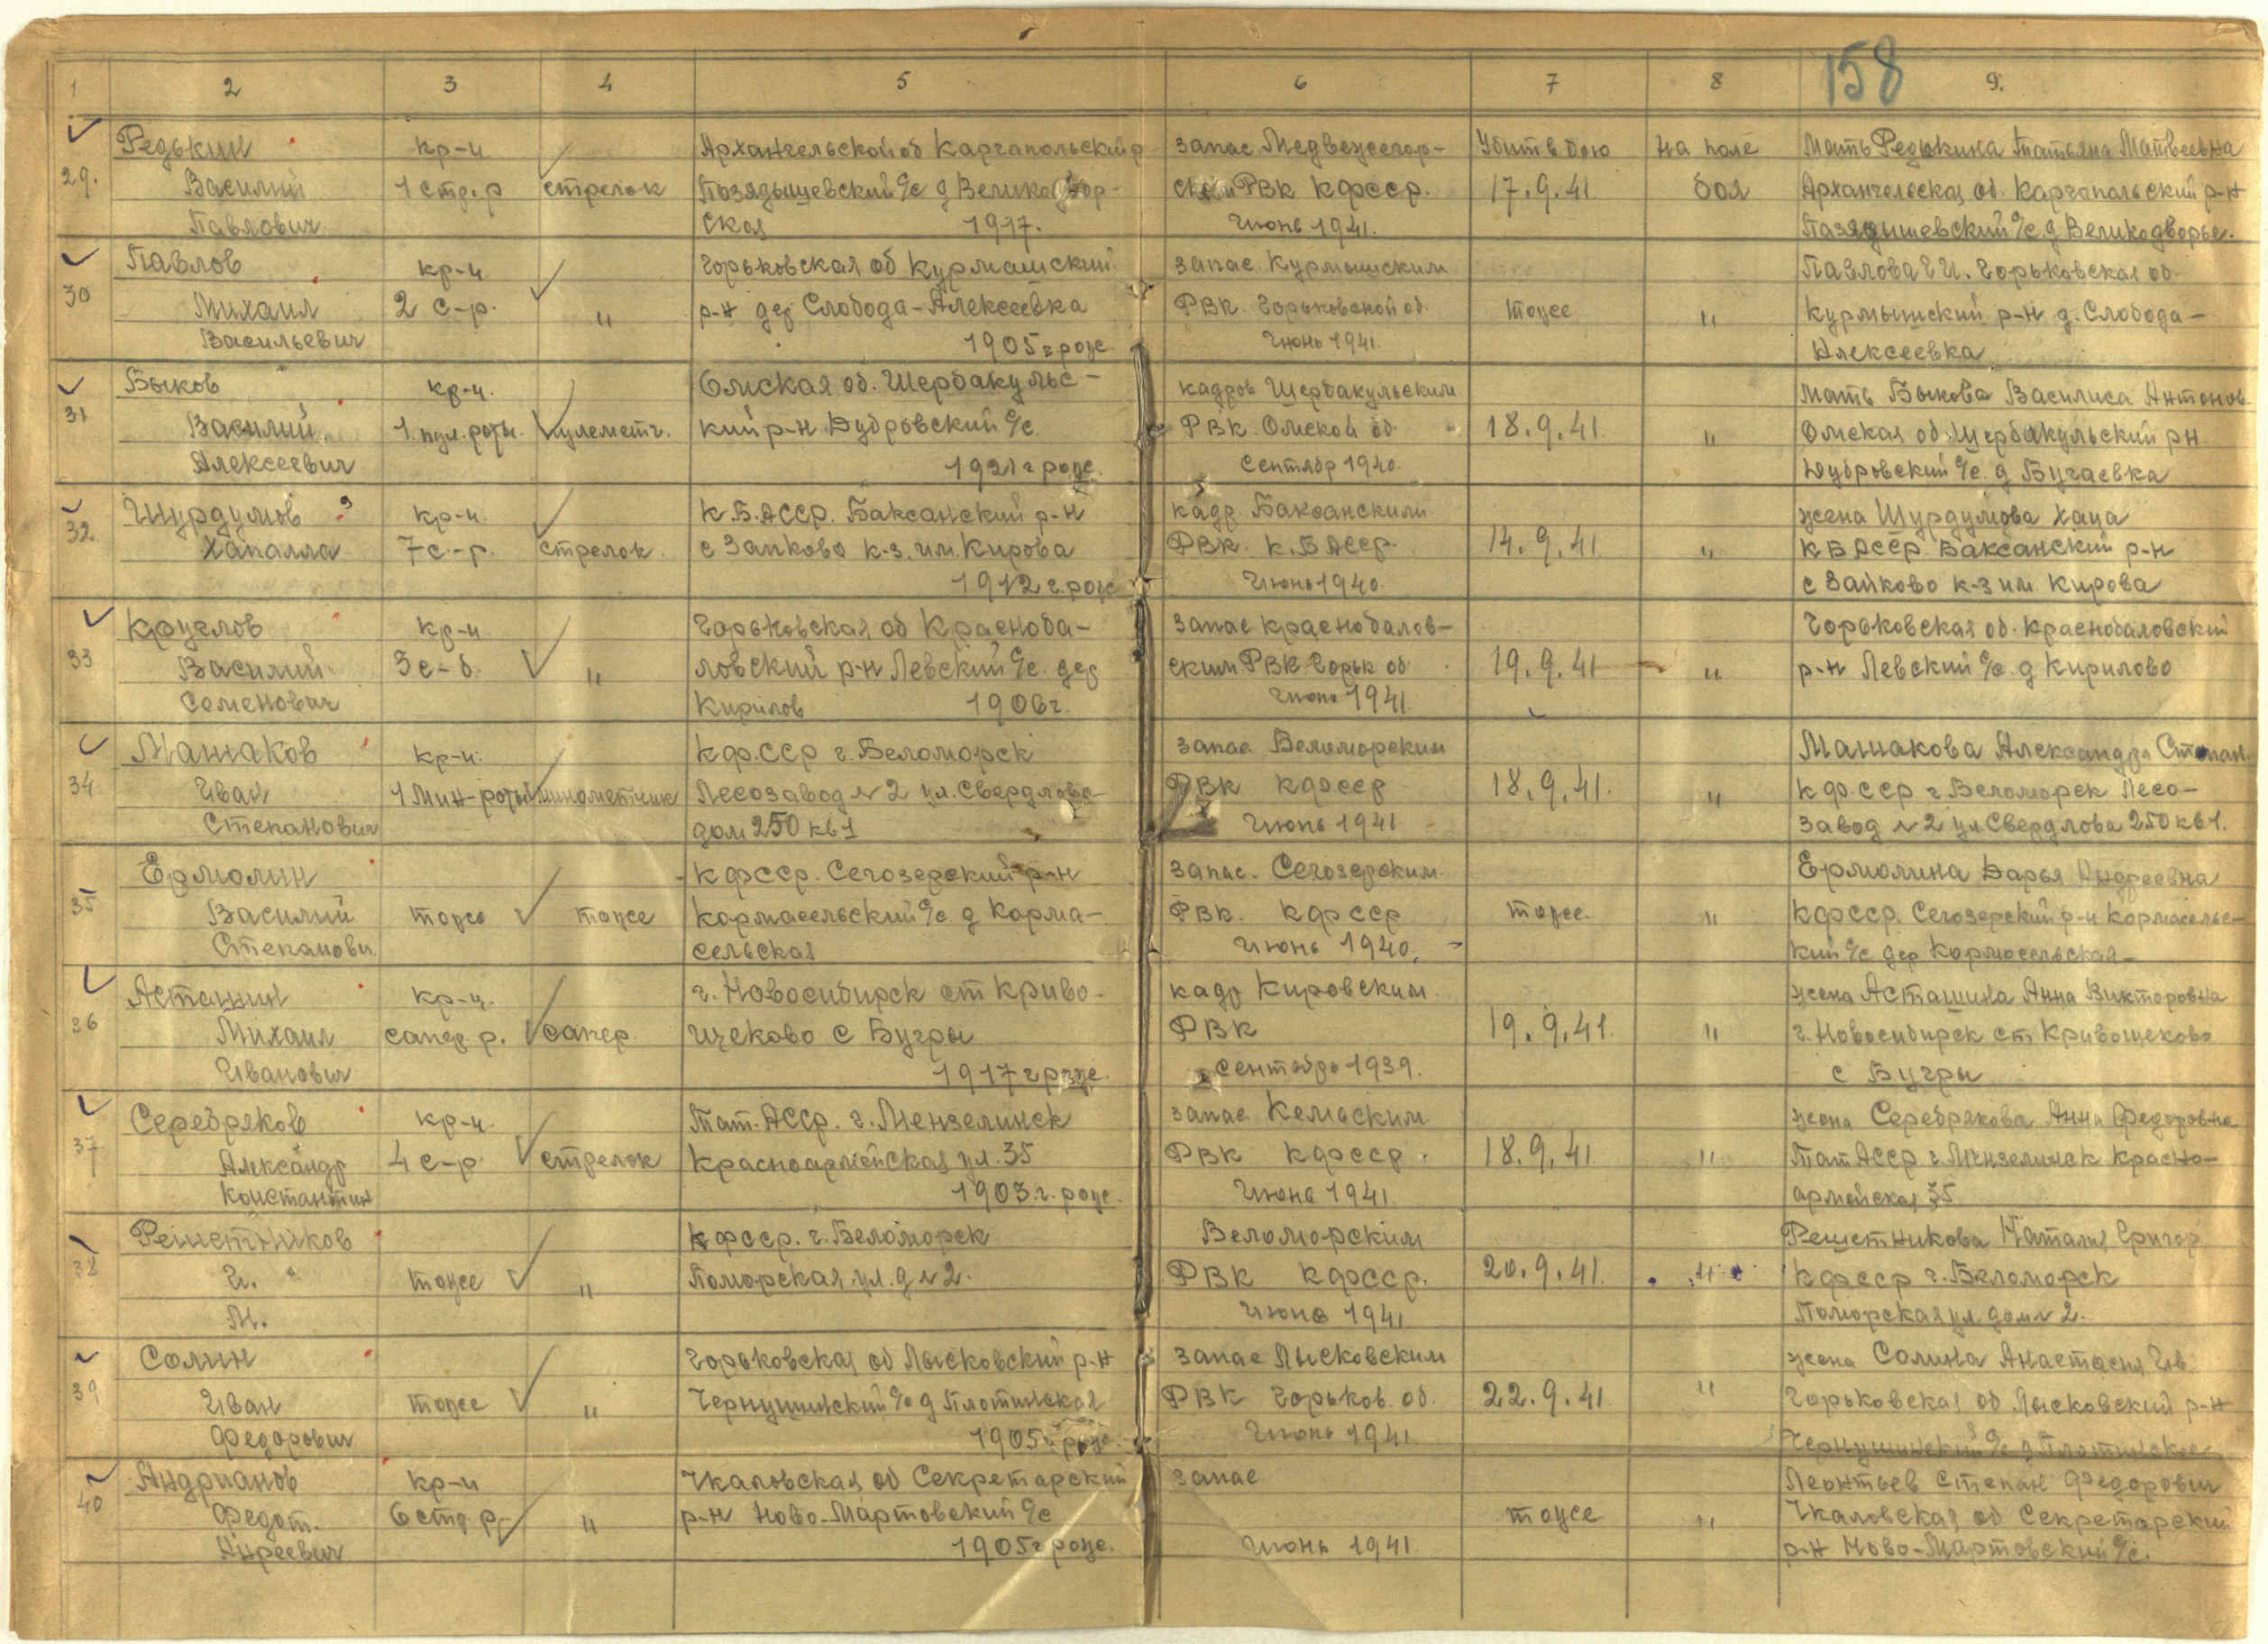 158
1 2 3 4 5 6 7 8 9.
29. Редькин кр-ц Архангельской об Каргапольский р запас Медвежегор- Убит в бою на поле Мать Редькина Татьяна Матвеевна
Василий 1 стр. р стрелок Позядышевский с/с д Великодвор- ским РВК КФССР. 17.9.41 боя Архангельская об. Каргапольский р-н
Павлович ская 1917. Июнь 1941. Пазядышевский с/с д Великодворье.
30 Павлов кр-ц Горьковская об Курмашский запас Курмышским Павлова Е И. Горьковская об
Михаил 2 с-р. " р-н дер Слобода-Алексеевка РВК Горьковской об. тоже " Курмышский р-н д. Слобода-
Васильевич 1905 г рож Июнь 1941. Алексеевка
31 Быков кр-ц. Омская об. Шербакульс- кадров Щербакульским мать Быкова Василиса Антонов.
Василий 1 пул. роты. пулеметч. кий р-н Дубровский с/с РВК Омской об 18.9.41. " Омская об. Щербакульский р-н
Алексеевич 1921 г рож. Сентябр 1940. Дубровский с/с. д Бугаевка
32 Шурдумов кр-ц. К.Б.АССР. Баксанский р-н кадр Баксанским жена Шурдумова Хаца
Хапалла 7 с.-р. стрелок. с Запково к-з. им. Кирова РВК. К.БАССР. 14.9.41 " КБАССР Баксанский р-н
1912 г. рож Июнь 1940. с Зайково к-з им Кирова
33 Круглов кр-ц Горьковская об Красноба- запас краснобалов- Горьковская об. Краснобаловский
Василий 3 с-б. " ловский р-н Левский с/с. дер ским РВК Горьк об 19.9.41 " р-н Левский с/с. д Кирилово
Семенович Кирилов 1906 г. Июнь 1941
34 Машаков кр-ц. К.Ф.ССР г. Беломорск запас Беломорским Машакова Александра Степан.
Иван 1 мин-роты минометчик Лесозавод № 2 ул. Свердлова- РВК КФССР 18.9.41. " К.Ф.ССР г Беломорск Лесо-
Степанович дом 250 кв 1 Июнь 1941 завод № 2 ул Свердлова 250 кв 1.
35 Ермолин КФССР. Сегозерский р-н запас. Сегозерским Ермолина Дарья Андреевна
Василий тоже тоже Кармасельский с/с. д Карма- РВК. КФССР тоже " КФССР. Сегозерский р-н Кармасельс-
Степанови. сельская Июнь 1940. кий с/с дер Кормосельская-
36 Асташин кр-ц. г. Новосибирск ст Криво- кадр Кировским жена Асташина Анна Викторовна
Михаил сапер. р. сапер. щеково с Бугры РВК 19.9.41. " г. Новосибирск ст Кривощеково
Иванович 1917 г рож. сентябрь 1939. с Бугры
37 Серебряков кр-ц. Тат. АССР. г. Мензелинск запас Кемьским жена Серебрякова Анна Федоровна
Александр 4 с-р. стрелок Красноармейская ул. 35 РВК КФССР. 18.9.41 " Тат АССР г. Мензелинск Красно-
Константин 1903 г. рож. Июнь 1941. армейская 35
38 Решетников КФССР. г. Беломорск Беломорским Решетникова Наталия Григор
И. тоже " Поморская ул. д № 2. РВК КФССР. 20.9.41. " КФССР г. Беломорск
М. Июнь 1941 Поморская ул дом № 2.
39 Солин Горьковская об Лысковский р-н запас Лысковским жена Солина Анастасия Ив
Иван тоже " Чернушинский с/с д Плотинская РВК Горьков. об. 22.9.41 " Горьковская об Лысковский р-н
Федорович 1905 г рож. Июнь 1941 Чернушинский с/с д Плотинское
40 Андрианов кр-ц Чкаловская об Секретарский запас Леонтьев Степан Федорович
Федот. 6 стр. р " р-н Ново-Мартовский с/с тоже " Чкаловская об Секретарский
Анреевич 1905 г рож. Июнь 1941 р-н Ново-Мартовский с/с.